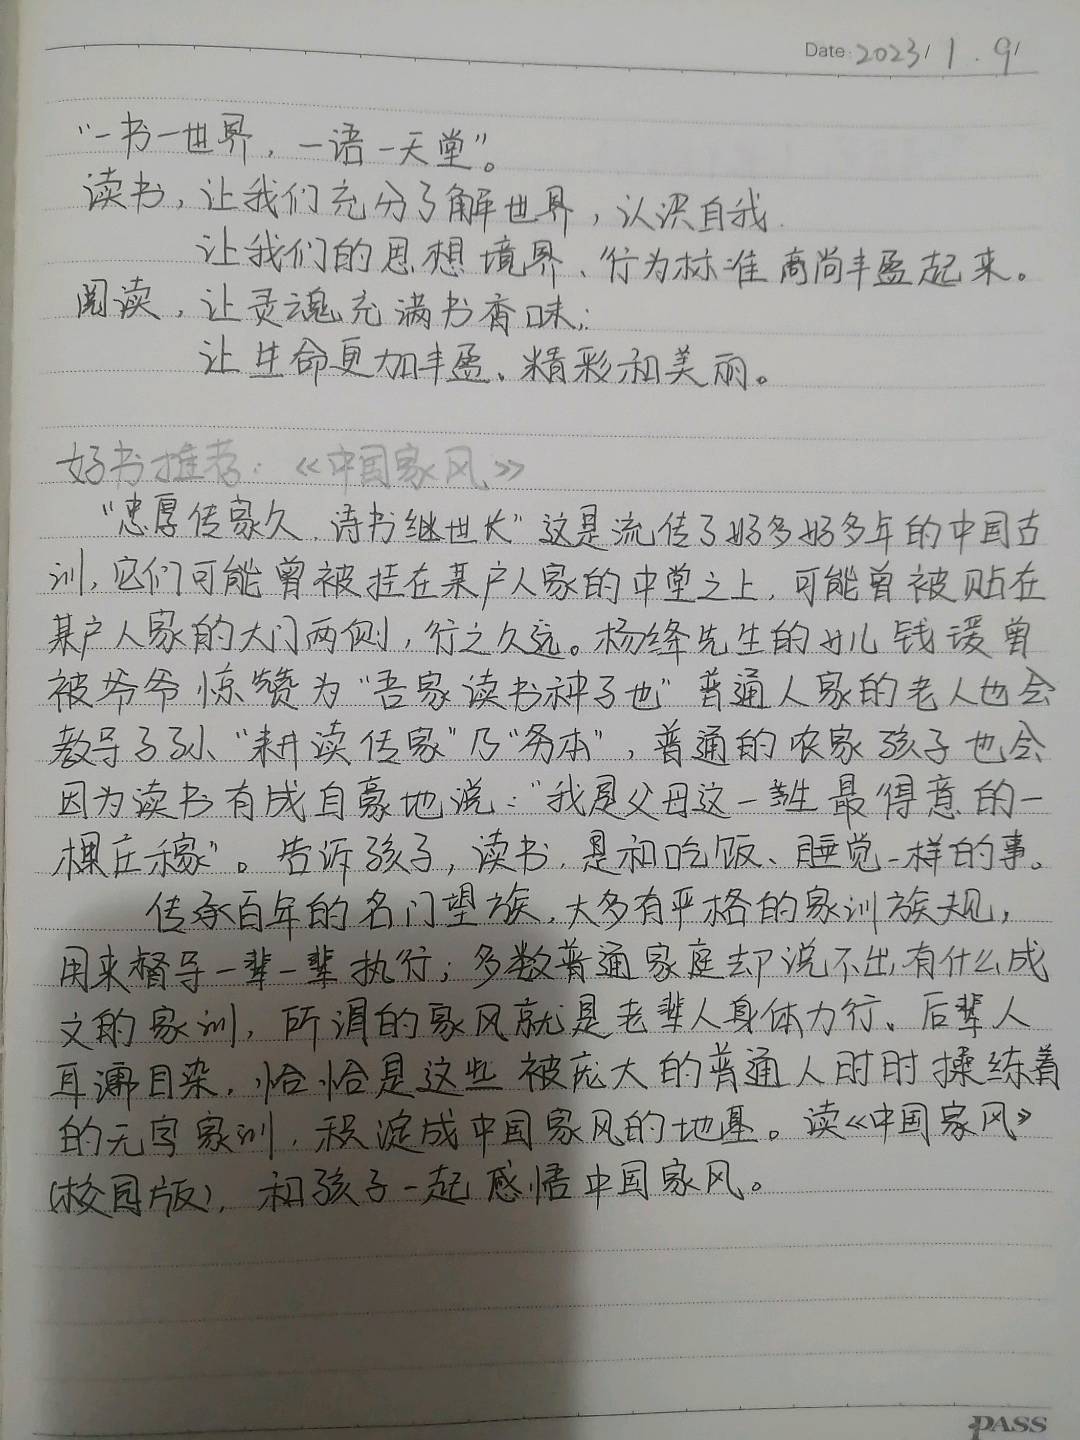 Date: 2023/1.9/
"一书一世界，一语一天堂"。
读书，让我们充分了解世界，认识自我.
让我们的思想境界、行为标准高尚丰盈起来。
阅读，让灵魂充满书香味；
让生命更加丰盈、精彩和美丽。
好书推荐：《中国家风》
"忠厚传家久，诗书继世长"这是流传了好多好多年的中国古
训，它们可能曾被挂在某户人家的中堂之上，可能曾被贴在
某户人家的大门两侧，行之久远。杨绛先生的女儿钱瑗曾
被爷爷惊赞为"吾家读书种子也"普通人家的老人也会
教导子孙"耕读传家"乃"务本"，普通的农家孩子也会
因为读书有成自豪地说："我是父母这一生最得意的一
棵庄稼"。告诉孩子，读书，是和吃饭、睡觉一样的事。
传承百年的名门望族，大多有严格的家训族规，
用来督导一辈一辈执行；多数普通家庭却说不出有什么成
文的家训，所谓的家风就是老辈人身体力行、后辈人
耳濡目染，恰恰是这些被庞大的普通人时时操练着
的无字家训，积淀成中国家风的地基。读《中国家风》
（校园版），和孩子一起感悟中国家风。
PASS